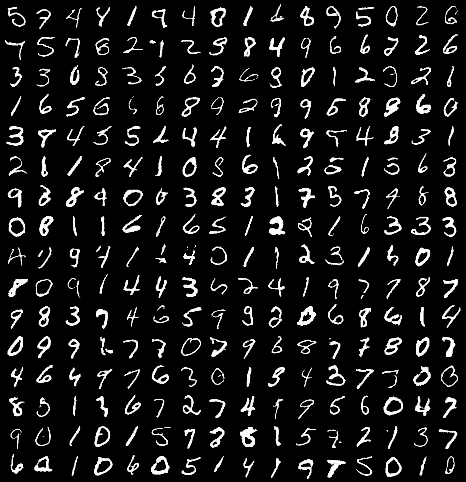 5 7 4 4 1 9 4 8 1 6 8 9 5 0 2 6
7 5 7 8 2 1 2 3 8 4 9 6 6 2 2 6
3 3 0 8 3 5 6 7 6 9 0 1 2 3 2 1
1 6 5 6 6 8 8 9 2 9 9 5 8 8 6 0
3 9 4 5 5 2 4 4 1 6 9 4 8 3 1
2 1 1 8 4 1 0 8 6 1 2 5 1 5 6 3
9 8 8 9 0 0 3 8 3 1 7 5 7 9 8 8
0 8 1 1 6 1 6 5 1 2 2 1 6 3 3 3
9 4 1 4 0 1 1 2 3 1 5 0 1
8 0 9 1 4 4 3 5 2 4 1 9 7 7 8 7
9 8 3 7 4 6 5 9 9 2 0 6 8 6 1 4
0 9 9 7 7 0 7 9 6 8 7 7 8 0 7
4 6 4 9 7 6 3 0 1 3 4 3 7 3 0 0
8 5 1 3 6 7 2 7 4 9 9 5 6 0 4 7
9 0 1 0 1 5 7 3 8 1 5 7 2 1 3 7
6 2 1 0 6 0 5 1 4 1 9 7 5 0 1 0